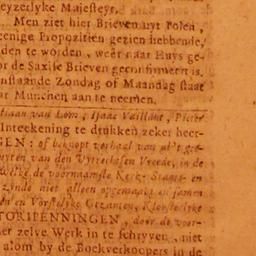 eyzerlyke Majesteyt.
Men ziet hier Brieven uyt Polen,
eenige Propozitien gezien hebbende,
den te worden, weêr naar Huys ge-
or de Saxise Brieven geconfirmeert is.
nstaande Zondag of Maandag staat
ar Munchen aan te neemen.
tiaan van Lom, Isaac Vaillant, Pieter
Inteekening te drukken zeker heer-
GEN: of beknopt verhaal van al 't ge-
uyten van den Uytrechtsen Vreede, in de
welke de voornaamste Kerk- Staats- en
zinde niet alleen opgemaakt en samm
en en Vorstelyke Gezamen, Kloosterlyke
TORIPENNINGEN, door de voor-
het zelve Werk in te schryven, niet
alom by de Boekverkoopers in de